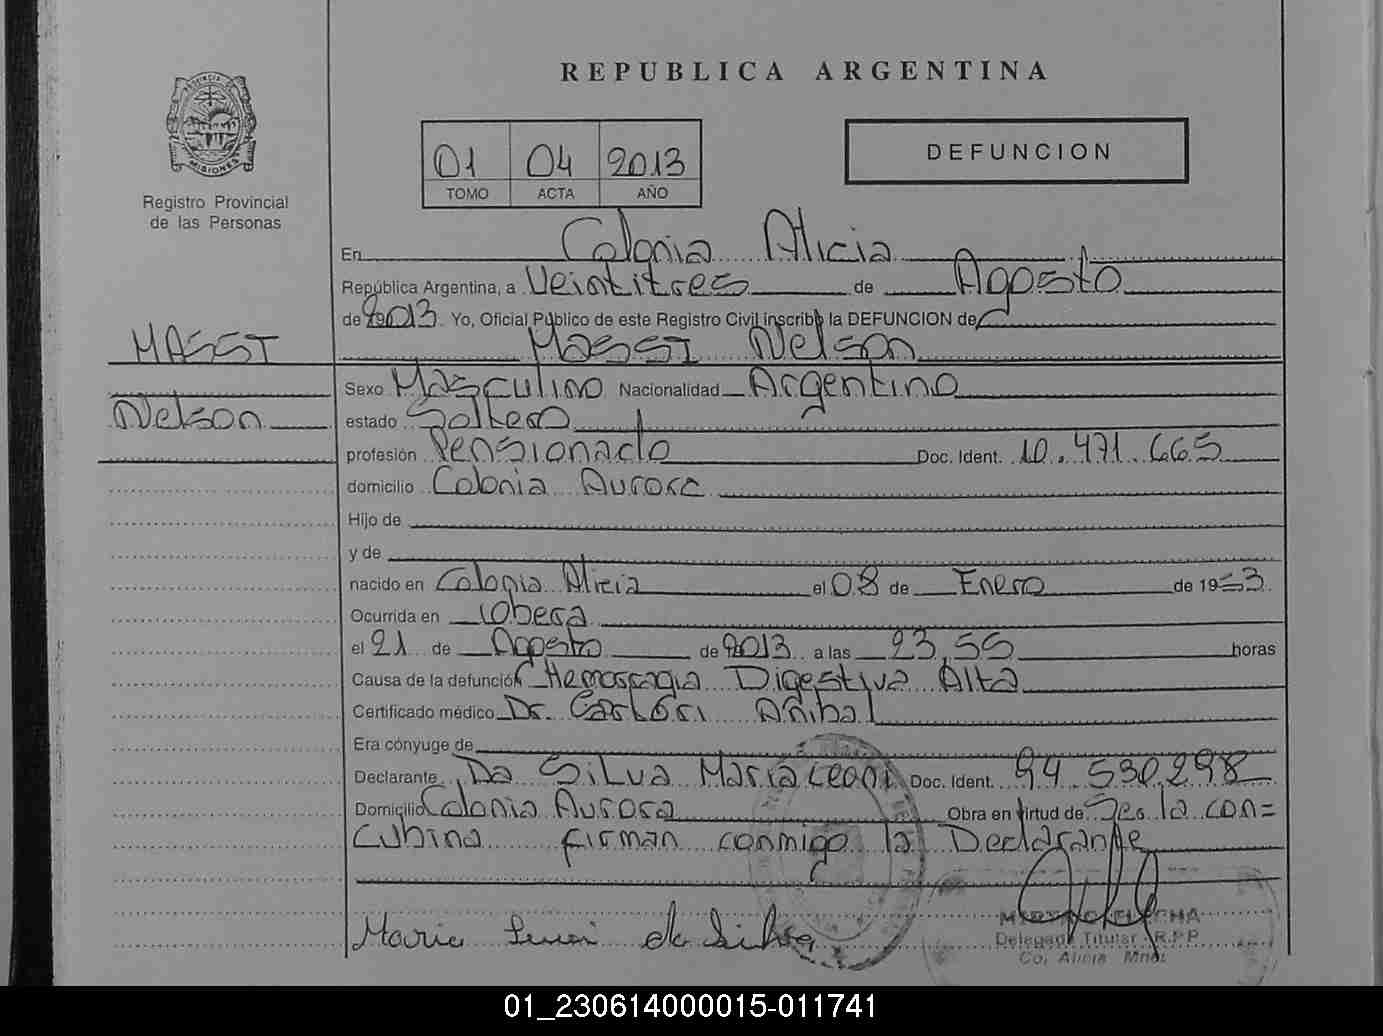 REPUBLICA ARGENTINA
PROVINCIA DE
MISIONES
Registro Provincial
de las Personas
01 04 2013
TOMO ACTA AÑO
DEFUNCION
En Colonia Alicia
República Argentina, a Veintitres de Agosto
de 2013. Yo, Oficial Público de este Registro Civil inscribo la DEFUNCION de
MASSI
MASSI Nelson
Sexo Masculino Nacionalidad Argentino
Nelson
estado Soltero
profesión Pensionado Doc. Ident. 10.471.665
domicilio Colonia Aurora
Hijo de
y de
nacido en Colonia Alicia el 08 de Enero de 1953
Ocurrida en Obera
el 21 de Agosto de 2013 a las 23,55 horas
Causa de la defunción Hemorragia Digestiva Alta
Certificado médico Dr. Anibal
Era cónyuge de
Declarante Da Silva Maria Leoni Doc. Ident. 94.530.298
Domicilio Colonia Aurora Obra en virtud de Ser la con=
cubina firman conmigo la Declarante
Maria da Silva
Delegada Titular R.P.P.
Col. Alicia Mnes.
01_230614000015-011741